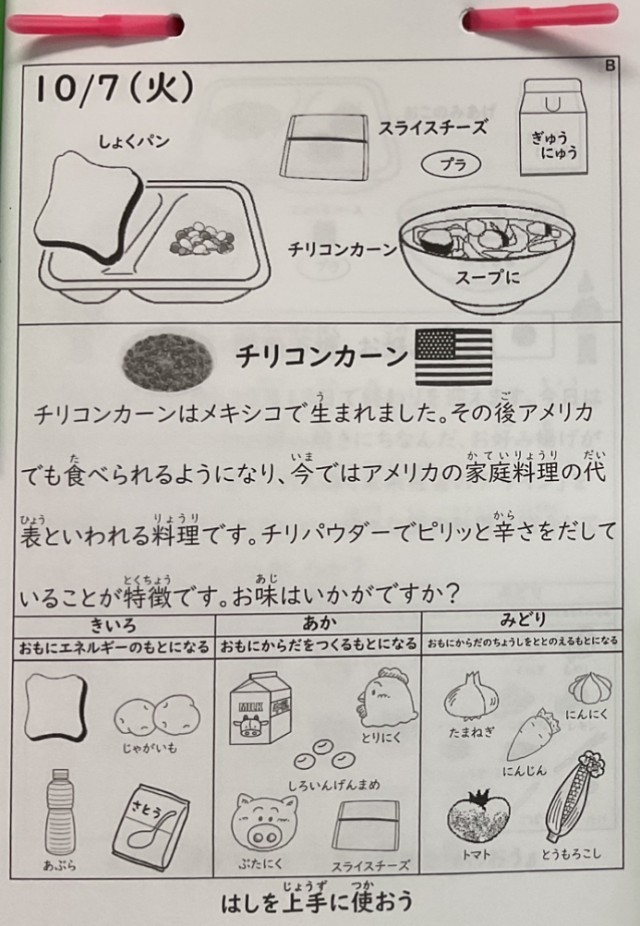 B
10/7(火)
しょくパン
スライスチーズ
プラ
ぎゅう
にゅう
チリコンカーン
スープに
チリコンカーン
チリコンカーンはメキシコで生まれました。その後アメリカ
でも食べられるようになり、今ではアメリカの家庭料理の代
表といわれる料理です。チリパウダーでピリッと辛さをだして
いることが特徴です。お味はいかがですか?
きいろ
おもにエネルギーのもとになる
じゃがいも
あぶら
さとう
あか
おもにからだをつくるもとになる
MILK
とりにく
しろいんげんまめ
ぶたにく
スライスチーズ
みどり
おもにからだのちょうしをととのえるもとになる
たまねぎ
にんにく
にんじん
トマト
とうもろこし
はしを上手に使おう